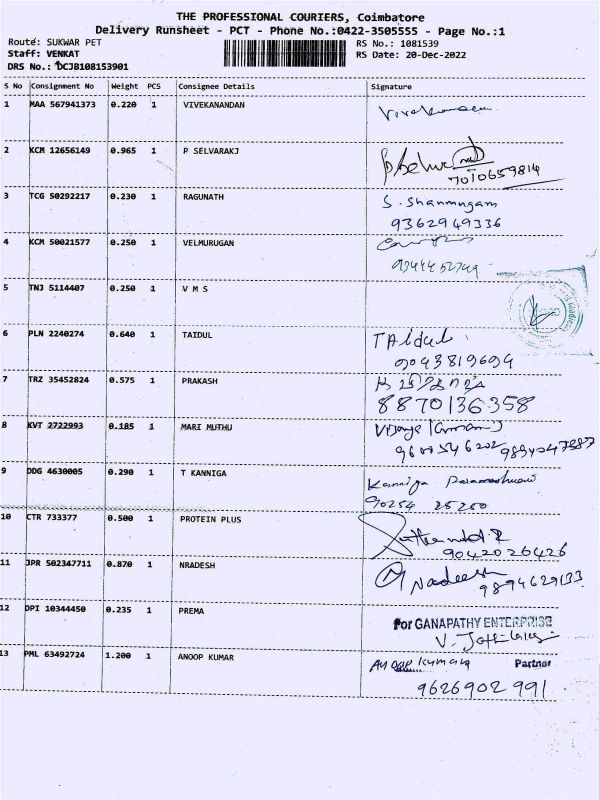 THE PROFESSIONAL COURIERS, Coimbatore
Delivery Runsheet - PCT - Phone No.:0422-3505555 - Page No.:1
Route: SUKWAR PET RS No.: 1081539
Staff: VENKAT RS Date: 20-Dec-2022
DRS No.: DCJB108153901
S No Consignment No Weight PCS Consignee Details Signature
1 MAA 567941373 0.220 1 VIVEKANANDAN
2 KCM 12656149 0.965 1 P SELVARAKJ
7010659814
3 TCG 50292217 0.230 1 RAGUNATH S. Shanmugam
9362949336
4 KCM 50021577 0.250 1 VELMURUGAN
5 TNJ 5114407 0.250 1 V M S
6 PLN 2240274 0.640 1 TAIDUL TAidul
9043819694
7 TRZ 35452824 0.575 1 PRAKASH
8870136358
8 KVT 2722993 0.185 1 MARI MUTHU
9 DDG 4630005 0.290 1 T KANNIGA Kanniga
90254 25260
10 CTR 733377 0.500 1 PROTEIN PLUS
9042026426
11 JPR 502347711 0.870 1 NRADESH Nradeesh
9894629133
12 DPI 10344450 0.235 1 PREMA For GANAPATHY ENTERPRISE
13 PML 63492724 1.200 1 ANOOP KUMAR Anoop Kumar Partner
9626902 991